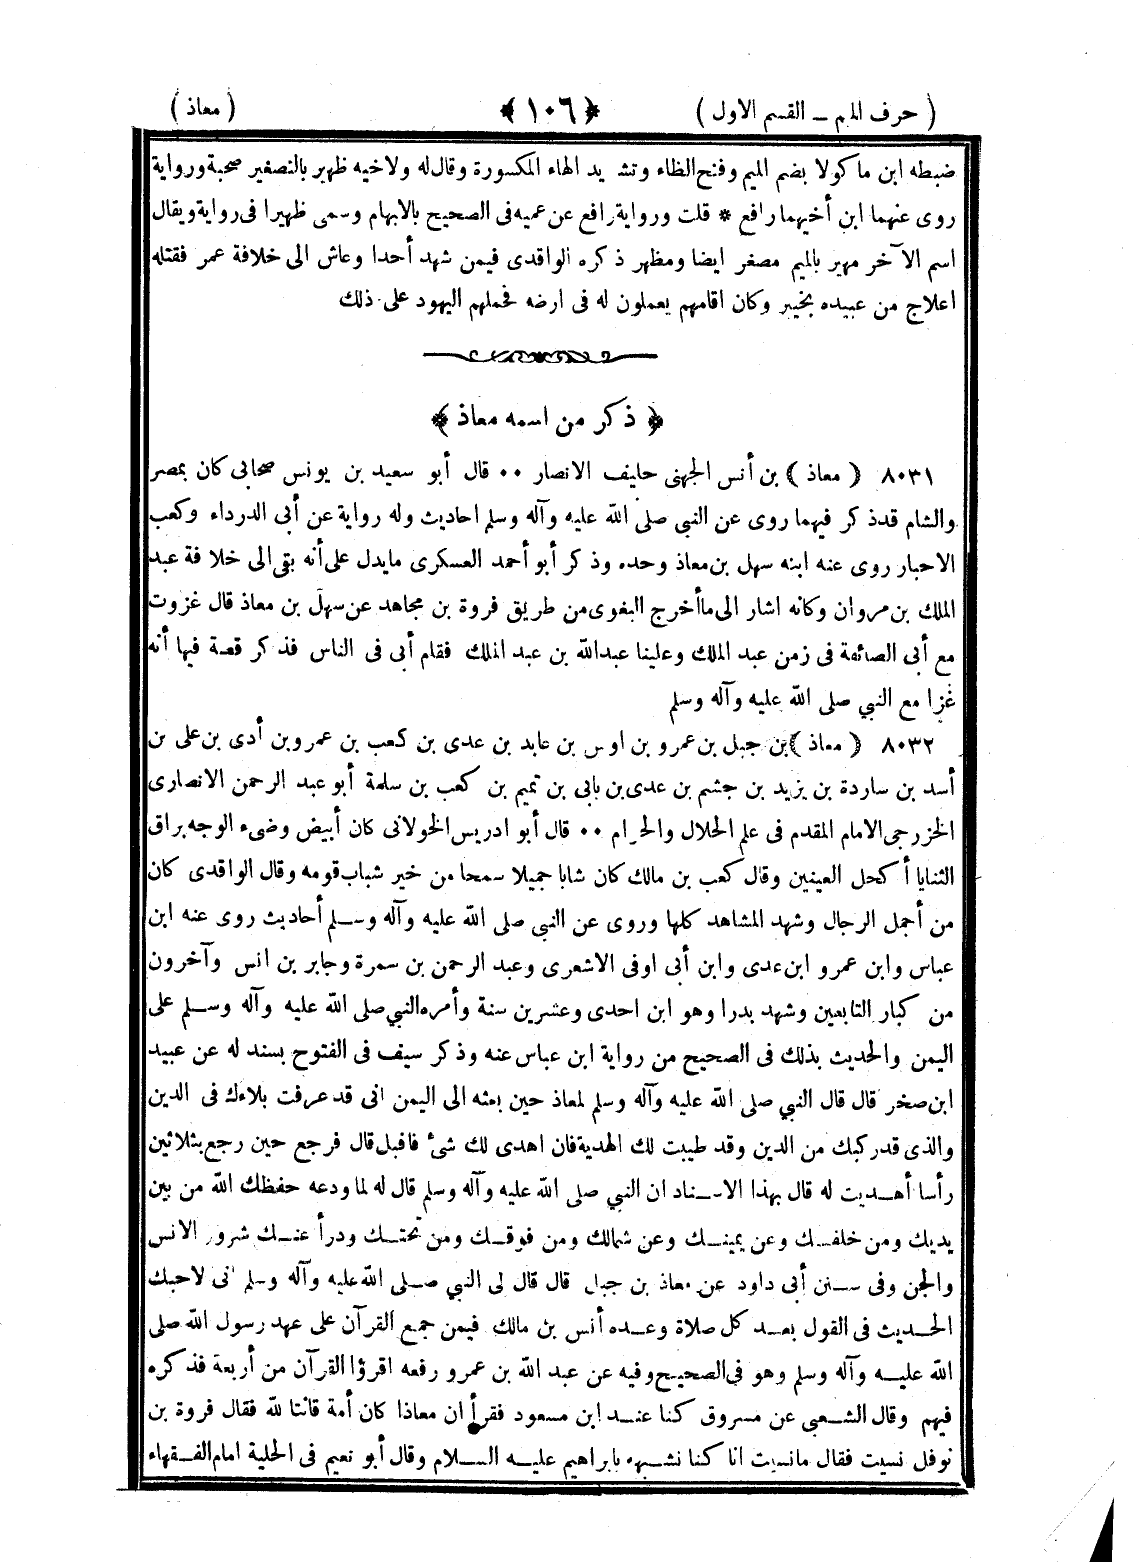 ( حرف الميم ــ القسم الاول ) ﴿ ١٠٦ ﴾ ( معاذ )
ضبطه ابن ماكولا بضم الميم وفتح الظاء وتشديد الهاء المكسورة وقال له ولاخيه ظهير بالتصغير صحبة ورواية
روى عنهما ابن أخيهما رافع * قلت ورواية رافع عن عميه فى الصحيح بالابهام وسمى ظهيرا فى رواية ويقال
اسم الآخر مهير بالميم مصغر ايضا ومظهر ذكره الواقدى فيمن شهد أحدا وعاش الى خلافة عمر فقتله
اعلاج من عبيده بخيبر وكان اقامهم يعملون له فى ارضه فحملهم اليهود على ذلك
﴿ ذكر من اسمه معاذ ﴾
٨٠٣١ ( معاذ ) بن أنس الجهنى حليف الانصار ٠٠ قال أبو سعيد بن يونس صحابى كان بمصر
والشام قدذكر فيهما روى عن النبي صلى الله عليه وآله وسلم احاديث وله رواية عن أبى الدرداء وكعب
الاحبار روى عنه ابنه سهل بن معاذ وحده وذكر أبو أحمد العسكرى مايدل على أنه بقى الى خلافة عبد
الملك بن مروان وكانه اشار الى ماأخرج البغوى من طريق فروة بن مجاهد عن سهل بن معاذ قال غزوت
مع أبى الصائفة فى زمن عبد الملك وعلينا عبدالله بن عبد الملك فقام أبى فى الناس فذكر قصة فيها أنه
غزا مع النبي صلى الله عليه وآله وسلم
٨٠٣٢ ( معاذ ) بن جبل بن عمرو بن اوس بن عايد بن عدى بن كعب بن عمرو بن أدى بن على بن
أسد بن ساردة بن يزيد بن جشم بن عدى بن بابى بن تميم بن كعب بن سلمة أبو عبد الرحمن الانصارى
الخزرجى الامام المقدم فى علم الحلال والحرام ٠٠ قال أبو ادريس الخولانى كان أبيض وضىء الوجه براق
الثنايا أكحل العينين وقال كعب بن مالك كان شابا جميلا سمحا من خير شباب قومه وقال الواقدى كان
من أجمل الرجال وشهد المشاهد كلها وروى عن النبي صلى الله عليه وآله وسلم أحاديث روى عنه ابن
عباس وابن عمرو ابن عدى وابن أبى اوفى الاشعرى وعبد الرحمن بن سمرة وجابر بن انس وآخرون
من كبار التابعين وشهد بدرا وهو ابن احدى وعشرين سنة وأمره النبي صلى الله عليه وآله وسلم على
اليمن والحديث بذلك فى الصحيح من رواية ابن عباس عنه وذكر سيف فى الفتوح بسند له عن عبيد
ابن صخر قال قال النبي صلى الله عليه وآله وسلم لمعاذ حين بعثه الى اليمن انى قد عرفت بلاءك فى الدين
والذى قدركبك من الدين وقد طيبت لك الهدية فان اهدى لك شئ فاقبل قال فرجع حين رجع بثلاثين
رأسا أهديت له قال بهذا الاسناد ان النبي صلى الله عليه وآله وسلم قال له لما ودعه حفظك الله من بين
يديك ومن خلفك وعن يمينك وعن شمالك ومن فوقك ومن تحتك ودرأ عنك شرور الانس
والجن وفى سنن أبى داود عن معاذ بن جبل قال قال لى النبي صلى الله عليه وآله وسلم انى لاحبك
الحديث فى القول بعد كل صلاة وعده أنس بن مالك فيمن جمع القرآن على عهد رسول الله صلى
الله عليه وآله وسلم وهو فى الصحيح وفيه عن عبد الله بن عمرو رفعه اقرؤا القرآن من أربعة فذكره
فيهم وقال الشعبى عن مسروق كنا عند ابن مسعود فقرأ ان معاذا كان أمة قانتا لله فقال فروة بن
نوفل نسيت فقال مانسيت انا كنا نشبهه بابراهيم عليه السلام وقال أبو نعيم فى الحلية امام الفقهاء